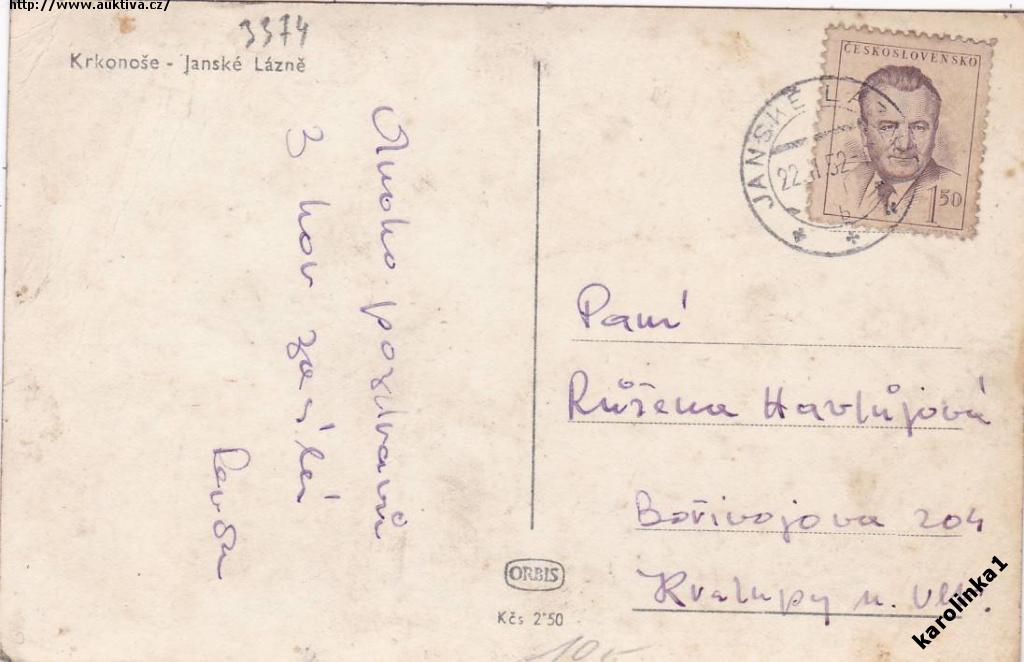 http://www.auktiva.cz/
3374
Krkonoše - Janské Lázně
Mnoho pozdravů
z hor zasílá
ČESKOSLOVENSKO
1 50
JANSKÉ LÁZ
22. 52
b
Paní
Růžena Havlůjová
Bořivojova 204
Kralupy n. Vlt.
ORBIS
Kčs 2·50
10
karolinka1